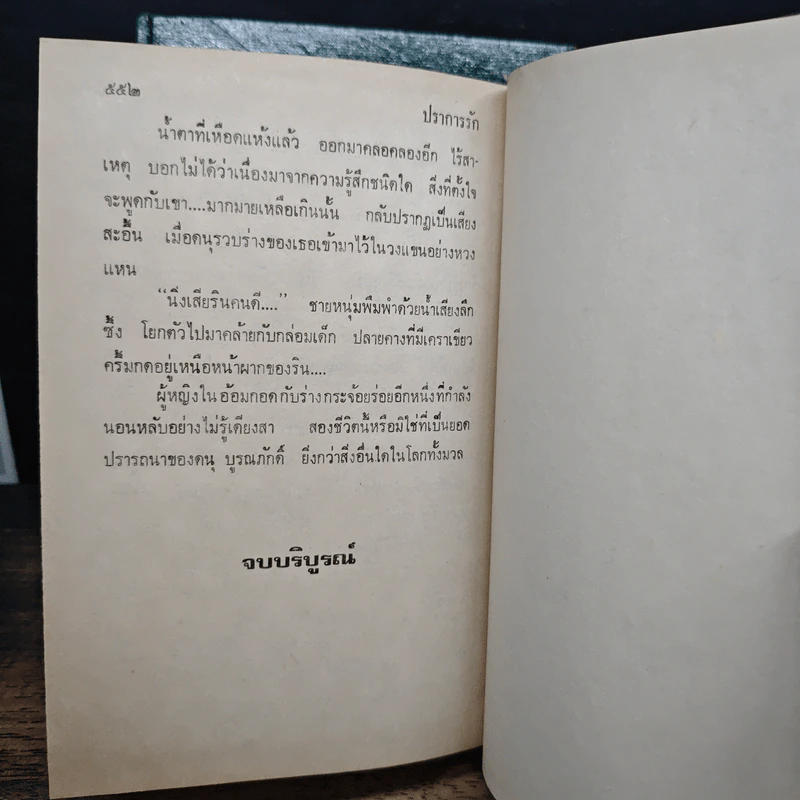 ๕๕๒
ปราการรัก
น้ำตาที่เหือดแห้งแล้ว ออกมาคลอคลองอีก ไร้สา-
เหตุ บอกไม่ได้ว่าเนื่องมาจากความรู้สึกชนิดใด สิ่งที่ตั้งใจ
จะพูดกับเขา....มากมายเหลือเกินนั้น กลับปรากฏเป็นเสียง
สะอื้น เมื่อดนุรวบร่างของเธอเข้ามาไว้ในวงแขนอย่างหวง
แหน
“นิ่งเสียรินคนดี....” ชายหนุ่มพึมพำด้วยน้ำเสียงลึก
ซึ้ง โยกตัวไปมาคล้ายกับกล่อมเด็ก ปลายคางที่มีเคราเขียว
ครึ้มกดอยู่เหนือหน้าผากของริน....
ผู้หญิงในอ้อมกอดกับร่างกระจ้อยร่อยอีกหนึ่งที่กำลัง
นอนหลับอย่างไม่รู้เดียงสา สองชีวิตนี้หรือมิใช่ที่เป็นยอด
ปรารถนาของดนุ บูรณภักดิ์ ยิ่งกว่าสิ่งอื่นใดในโลกทั้งมวล
จบบริบูรณ์